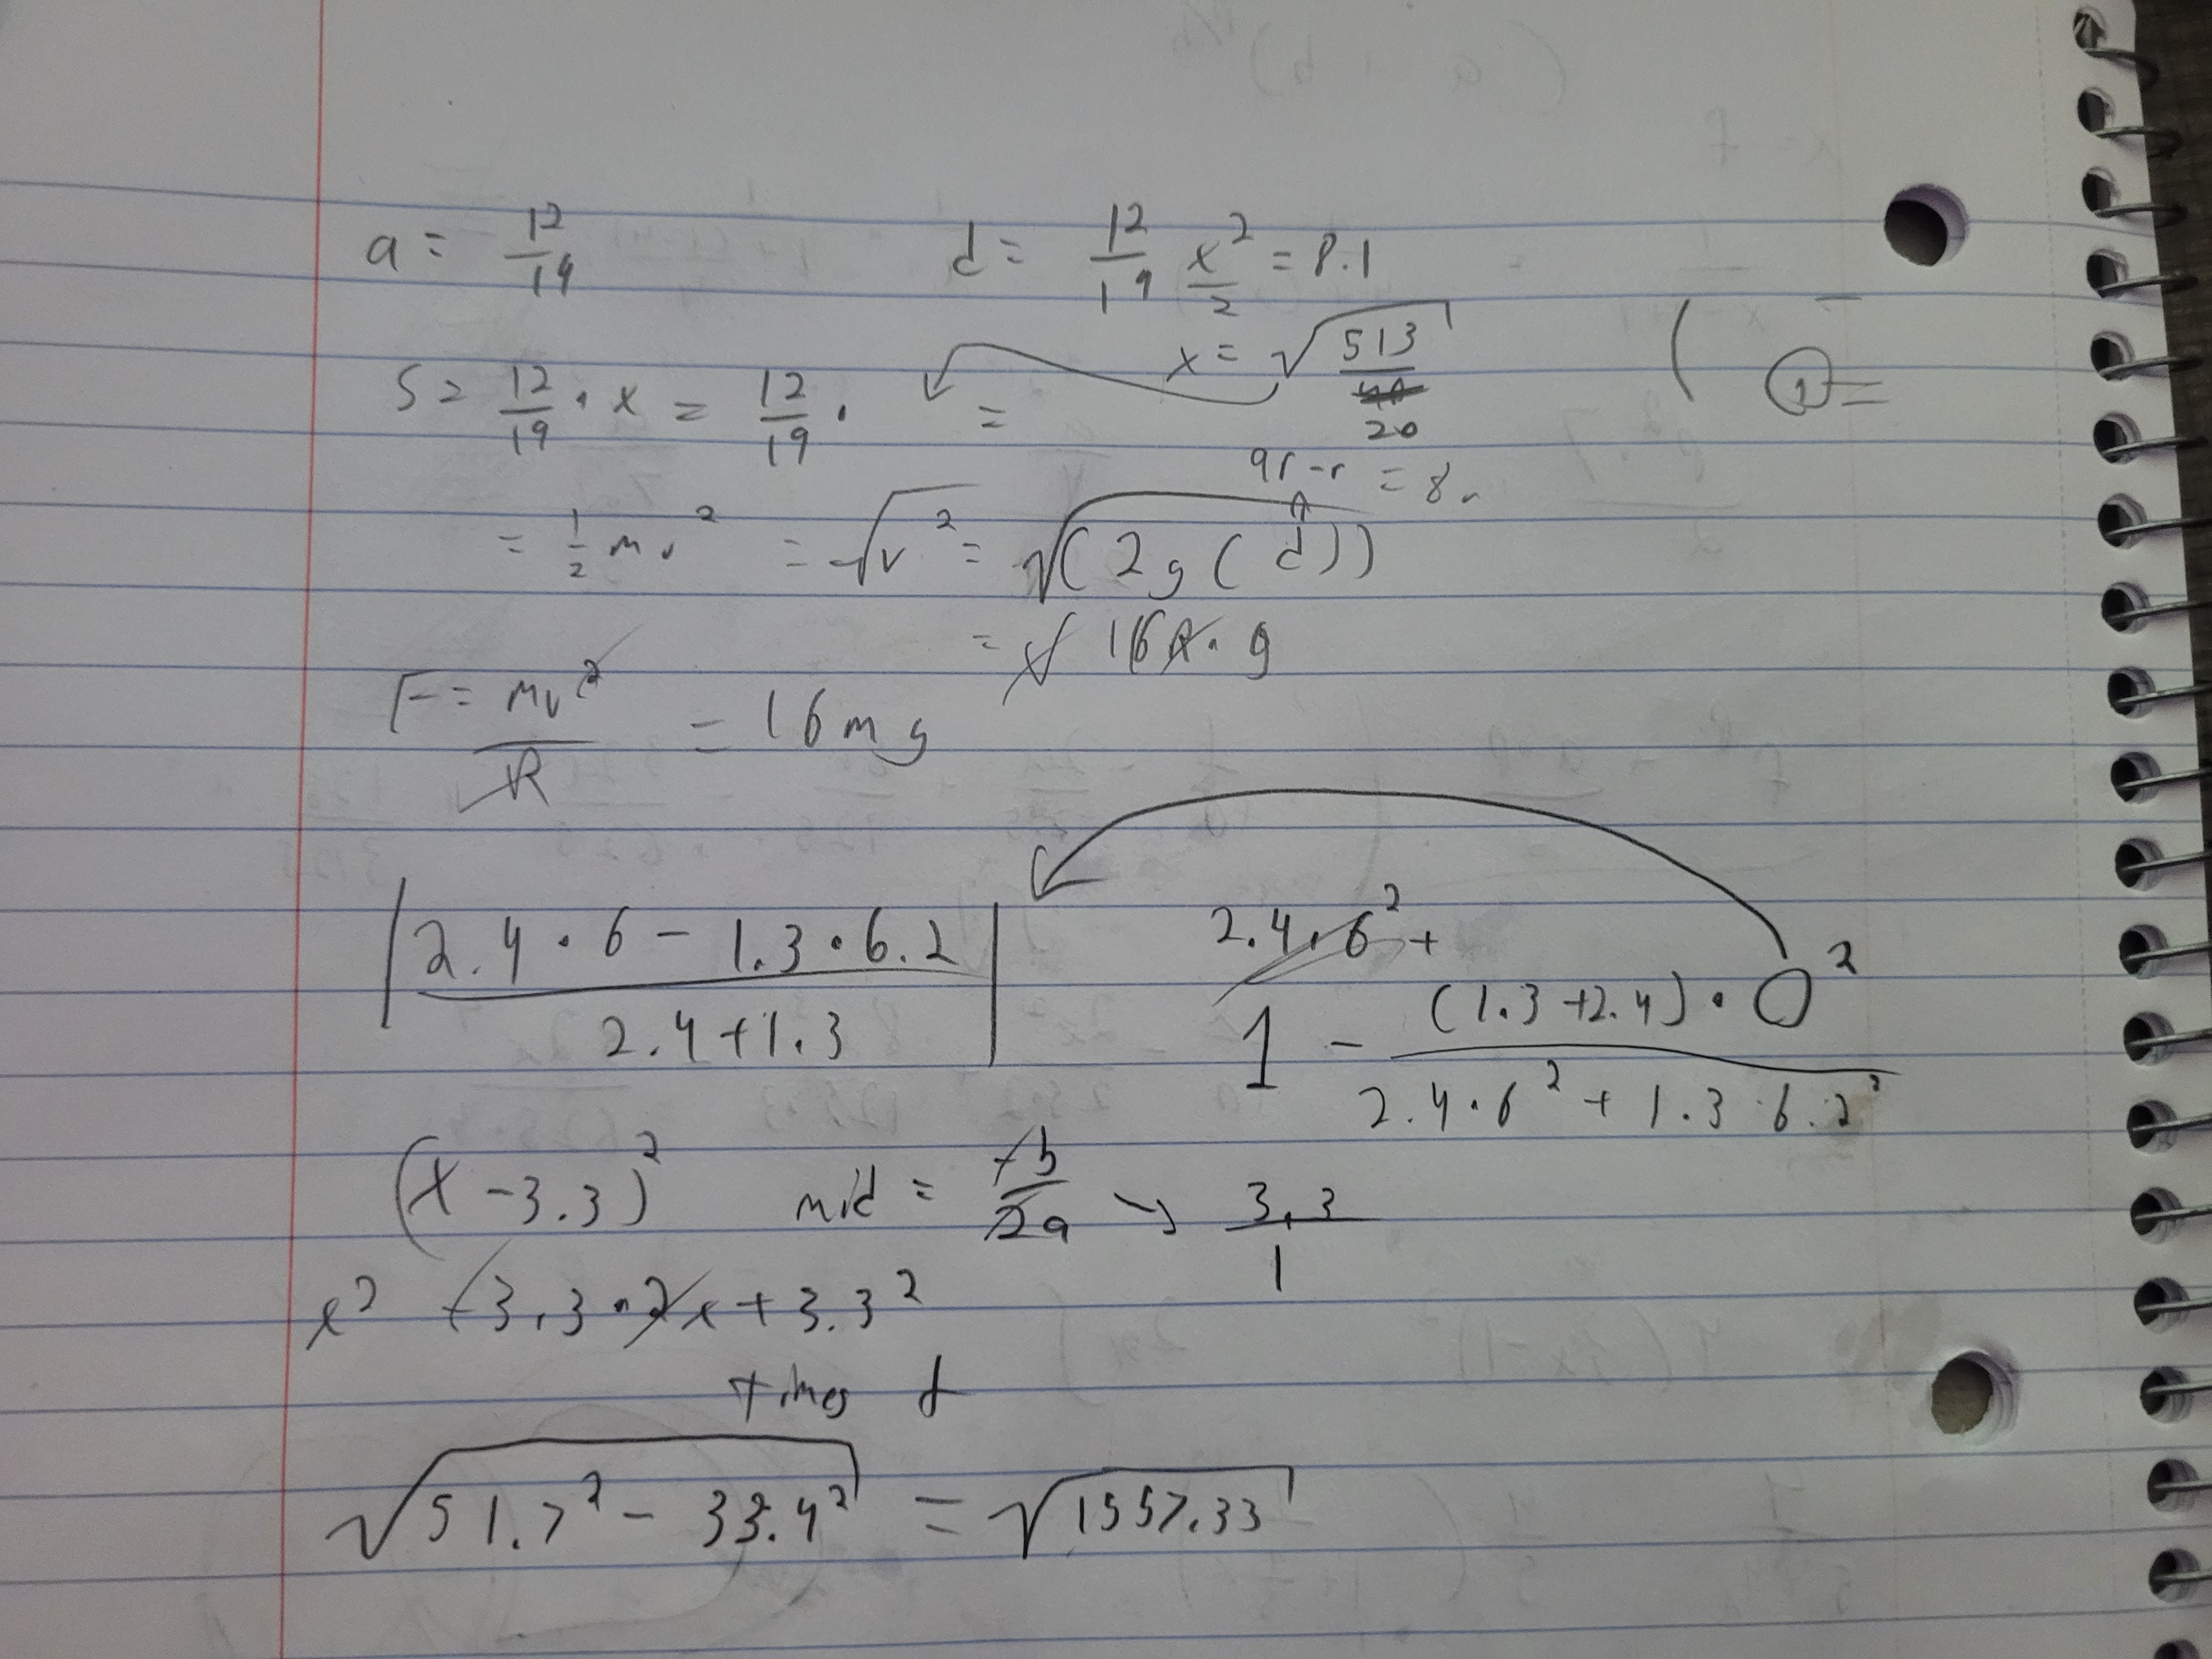 a = 12/19 d = 12/19 x²/2 = 8.1
x = √(513/20)
S = 12/19 · x = 12/19 · =
9r - r = 8r
= 1/2 mv² = √v² = √(2g(d))
= √16R · g
F = mv²/R = 16mg
|(2.4 · 6 - 1.3 · 6.2)/(2.4 + 1.3)| 2.4 · 6² +
1 - ((1.3 + 2.4) · O²)/(2.4 · 6² + 1.3 · 6.2²)
(x - 3.3)² mid = -b/2a → 3.3/1
x² - 3.3 · 2x + 3.3²
times d
√(51.7² - 33.4²) = √1557.33
( 1 =